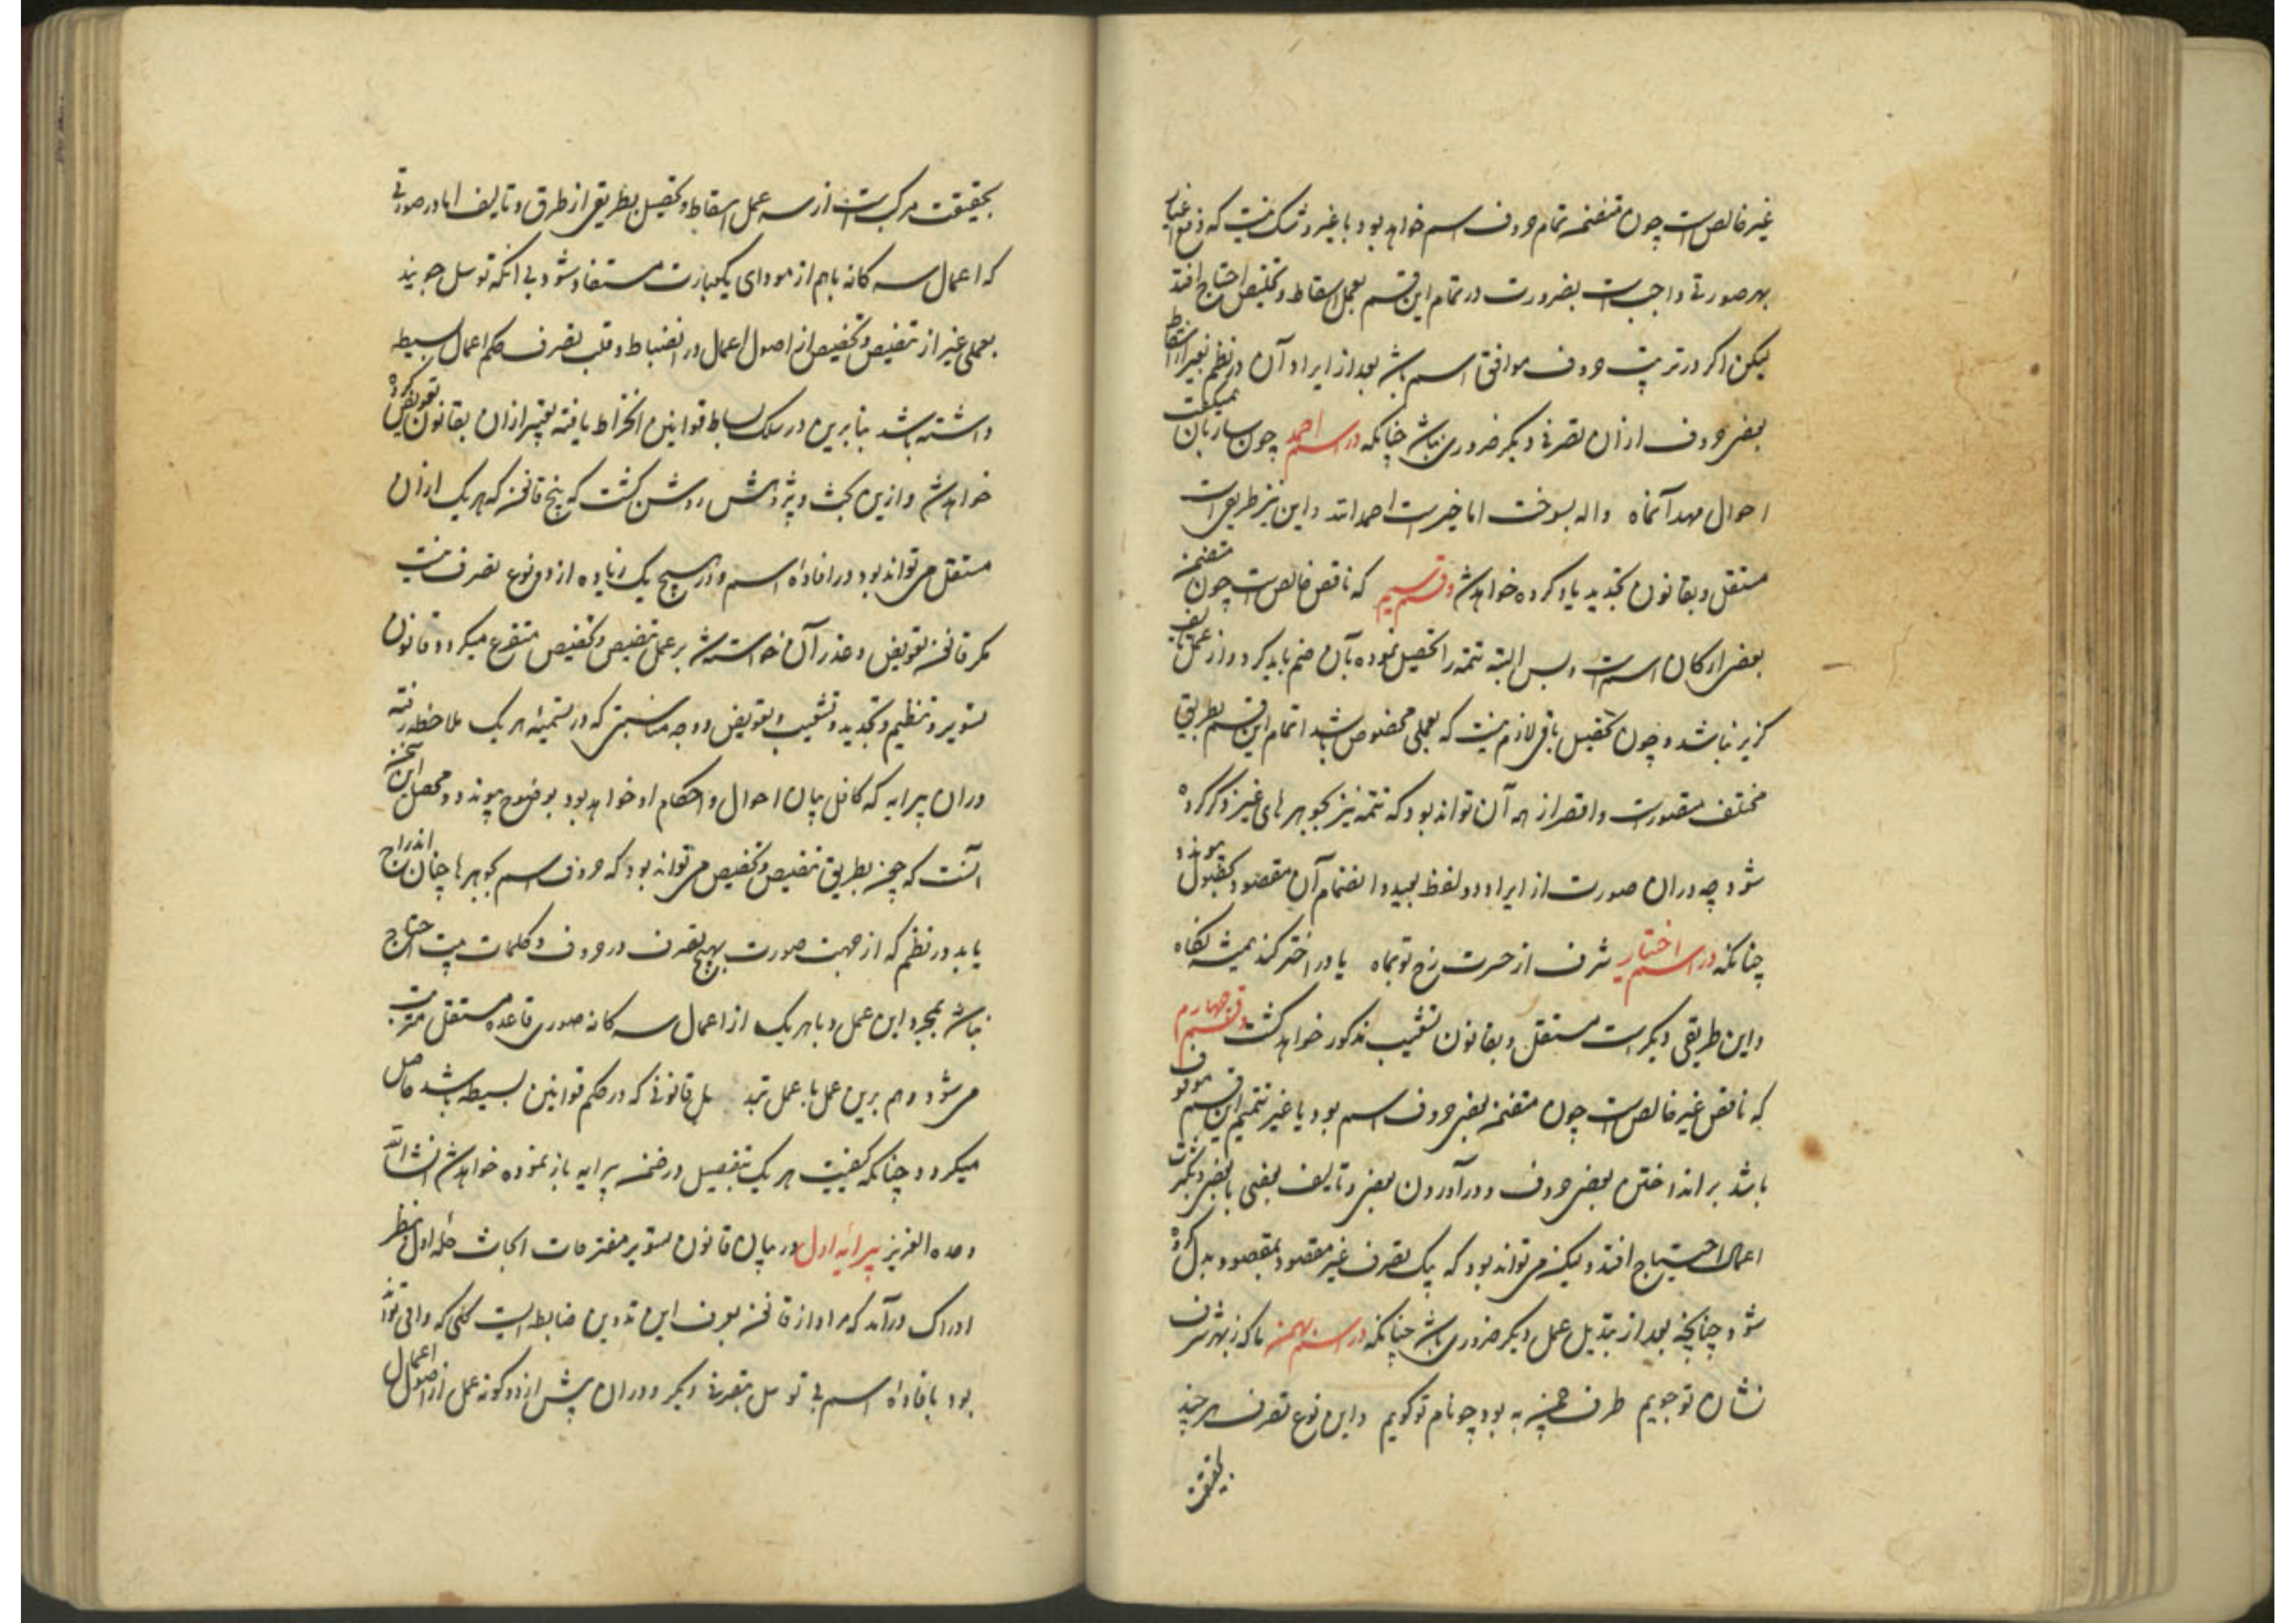 غیر خالص است چون متضمن تمام حروف اسم خواهد بود با غیر و شک نیست که رفع اغیار
بهر صورتی واجبست بضرورت در تمام این قسم بعمل اسقاط و تخلیص احتیاج افتد
لیکن اگر در ترتیب حروف موافق اسم باشد بعد از ایراد آن در نظم بغیر از اسقاط
بعضی حروف از آن تصرفی دیگر ضروری نباشد چنانکه در اسم احمد چون ساربان
احوال مهد آنماه واله بسوخت اما خیرست احمد الله و این نیز طریقی است
مستقل و بقانون تجدید یاد کرده خواهد شد و قسم سیم که ناقص خالص است چون متضمن
بعضی ارکان اسم است و بس البته تتمه را تحصیل نموده بآن ضم باید کرد و از عمل تالیف
گزیر نباشد و چون تحصیل باقی لازم نیست که بعملی مخصوص باشد اتمام این قسم بطریق
مختلف متصورست و اقصر از همه آن تواند بود که تتمه نیز بجوهرهای غیر ذکر کرده
شود چه در ان صورت از ایراد دو لفظ بمجرد انضمام آن مقصود بحصول پیوندد
چنانکه در اسم اختیار شرف از حسرت رخ تو بماه یا در اختر کند همیشه نگاه
و این طریقی دیگر است مستقل و بقانون تشعیب مذکور خواهد گشت و قسم چهارم
که ناقص غیر خالص است چون متضمن بعضی حروف اسم بود یا غیر تتمیم این قسم موقوف
باشد بر انداختن بعضی حروف و درآوردن بعضی و تالیف بعضی با بعضی دیگر
اعمال احتیاج افتد و لیکن می تواند بود که بیک تصرف غیر مقصود بمقصود بدل کرده
شود چنانچه بعد از تبدیل عمل دیگر ضروری نباشد چنانکه در اسم بهمن ما که ز بهر شرف
نشان تو جوییم طرف چمن به بود چو نام تو گوییم و این نوع تصرف هر چند
بحقیقت
بحقیقت مرکب است از سه عمل اسقاط و تحصیل بطریقی از طرق و تالیف اما در صورتی
که اعمال سه کانه باهم از مودای یکعبارت مستفاد شود بی انکه توسل جویند
بعملی غیر از تنصیص و تخصیص از اصول اعمال در انضباط و قلت تصرف حکم اعمال بسیطه
داشته باشد بنابرین در سلک بساط قوانین انخراط یافته تعبیر از ان بقانون تعویض کرده
خواهد شد و ازین بحث و پژوهش روشن گشت که پنج قانون که هر یک از ان
مستقل می تواند بود در افاده اسم و در هیچ یک زیاده از دو نوع تصرف نیست
مگر قانون تعویض و عذر آن خواسته شد بر عمل تنصیص و تخصیص متفرع میگردد قانون
تسویر و تنظیم و تجدید و تشعیب و تعویض و وجه مناسبتی که در تسمیه هر یک ملاحظه رفته
دران پیرایه که کافل بیان احوال و احکام او خواهد بود بوضوح پیوندد و محصل این سخن
آنست که چون بطریق تنصیص و تخصیص می تواند بود که حروف اسم بجوهرها چنان اندراج
یابد در نظم که از جهت صورت بهیچ تصرف در حروف و کلمات بیت احتیاج
نباشد بمجرد این عمل و با هر یک از اعمال سه کانه صوری قاعده مستقل مترتب
می شود و هم برین عمل با عمل تبدیل قانونی که در حکم قوانین بسیطه باشد حاصل
میگردد چنانکه کیفیت هر یک بتفصیل در ضمن پیرایه باز نموده خواهد شد انشاالله
وحده العزیز پیرایه اول در بیان قانون تسویر مفترحات ابحاث حله اول بنظر
ادراک درآمد که مراد از قانون بعرف این تدوین ضابطه ایست کلی که وافی تواند
بود بافاده اسم بی توسل بتصرفی دیگر و دران بیش از دو گونه عمل از اصول اعمال